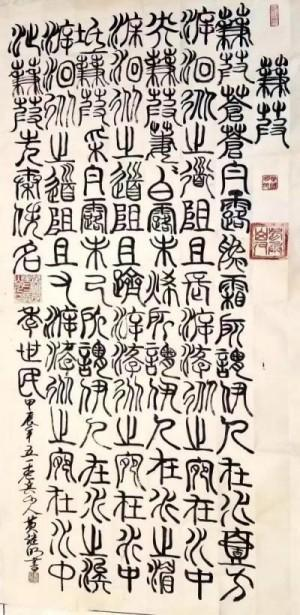 蒹葭
蒹葭蒼蒼白露為霜所謂伊人在水壹方
溯洄從之道阻且長溯游從之宛在水中
央蒹葭萋萋白露未晞所謂伊人在水之湄
溯洄從之道阻且躋溯游從之宛在水中
坻蒹葭采采白露未已所謂伊人在水之涘
溯洄從之道阻且右溯游從之宛在水中
沚蒹葭先秦佚名
世民甲辰年五